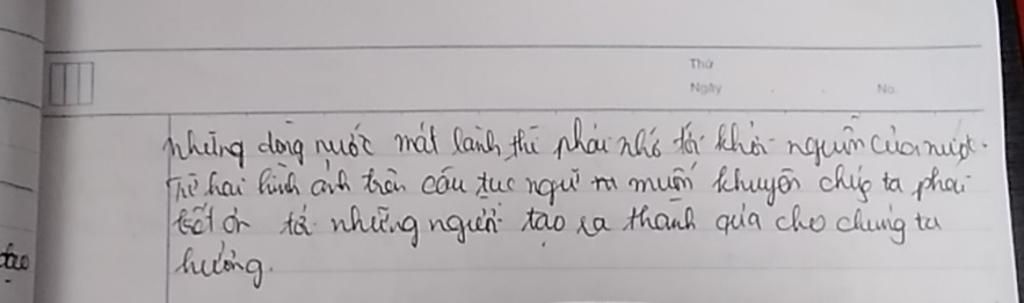 Thứ
Ngày No.
những dòng nước mát lành thì phải nhớ tới khởi nguồn của nước.
Từ hai hình ảnh trên câu tục ngữ muốn khuyên chúng ta phải
biết ơn tới những người tạo ra thành quả cho chúng ta
hưởng.